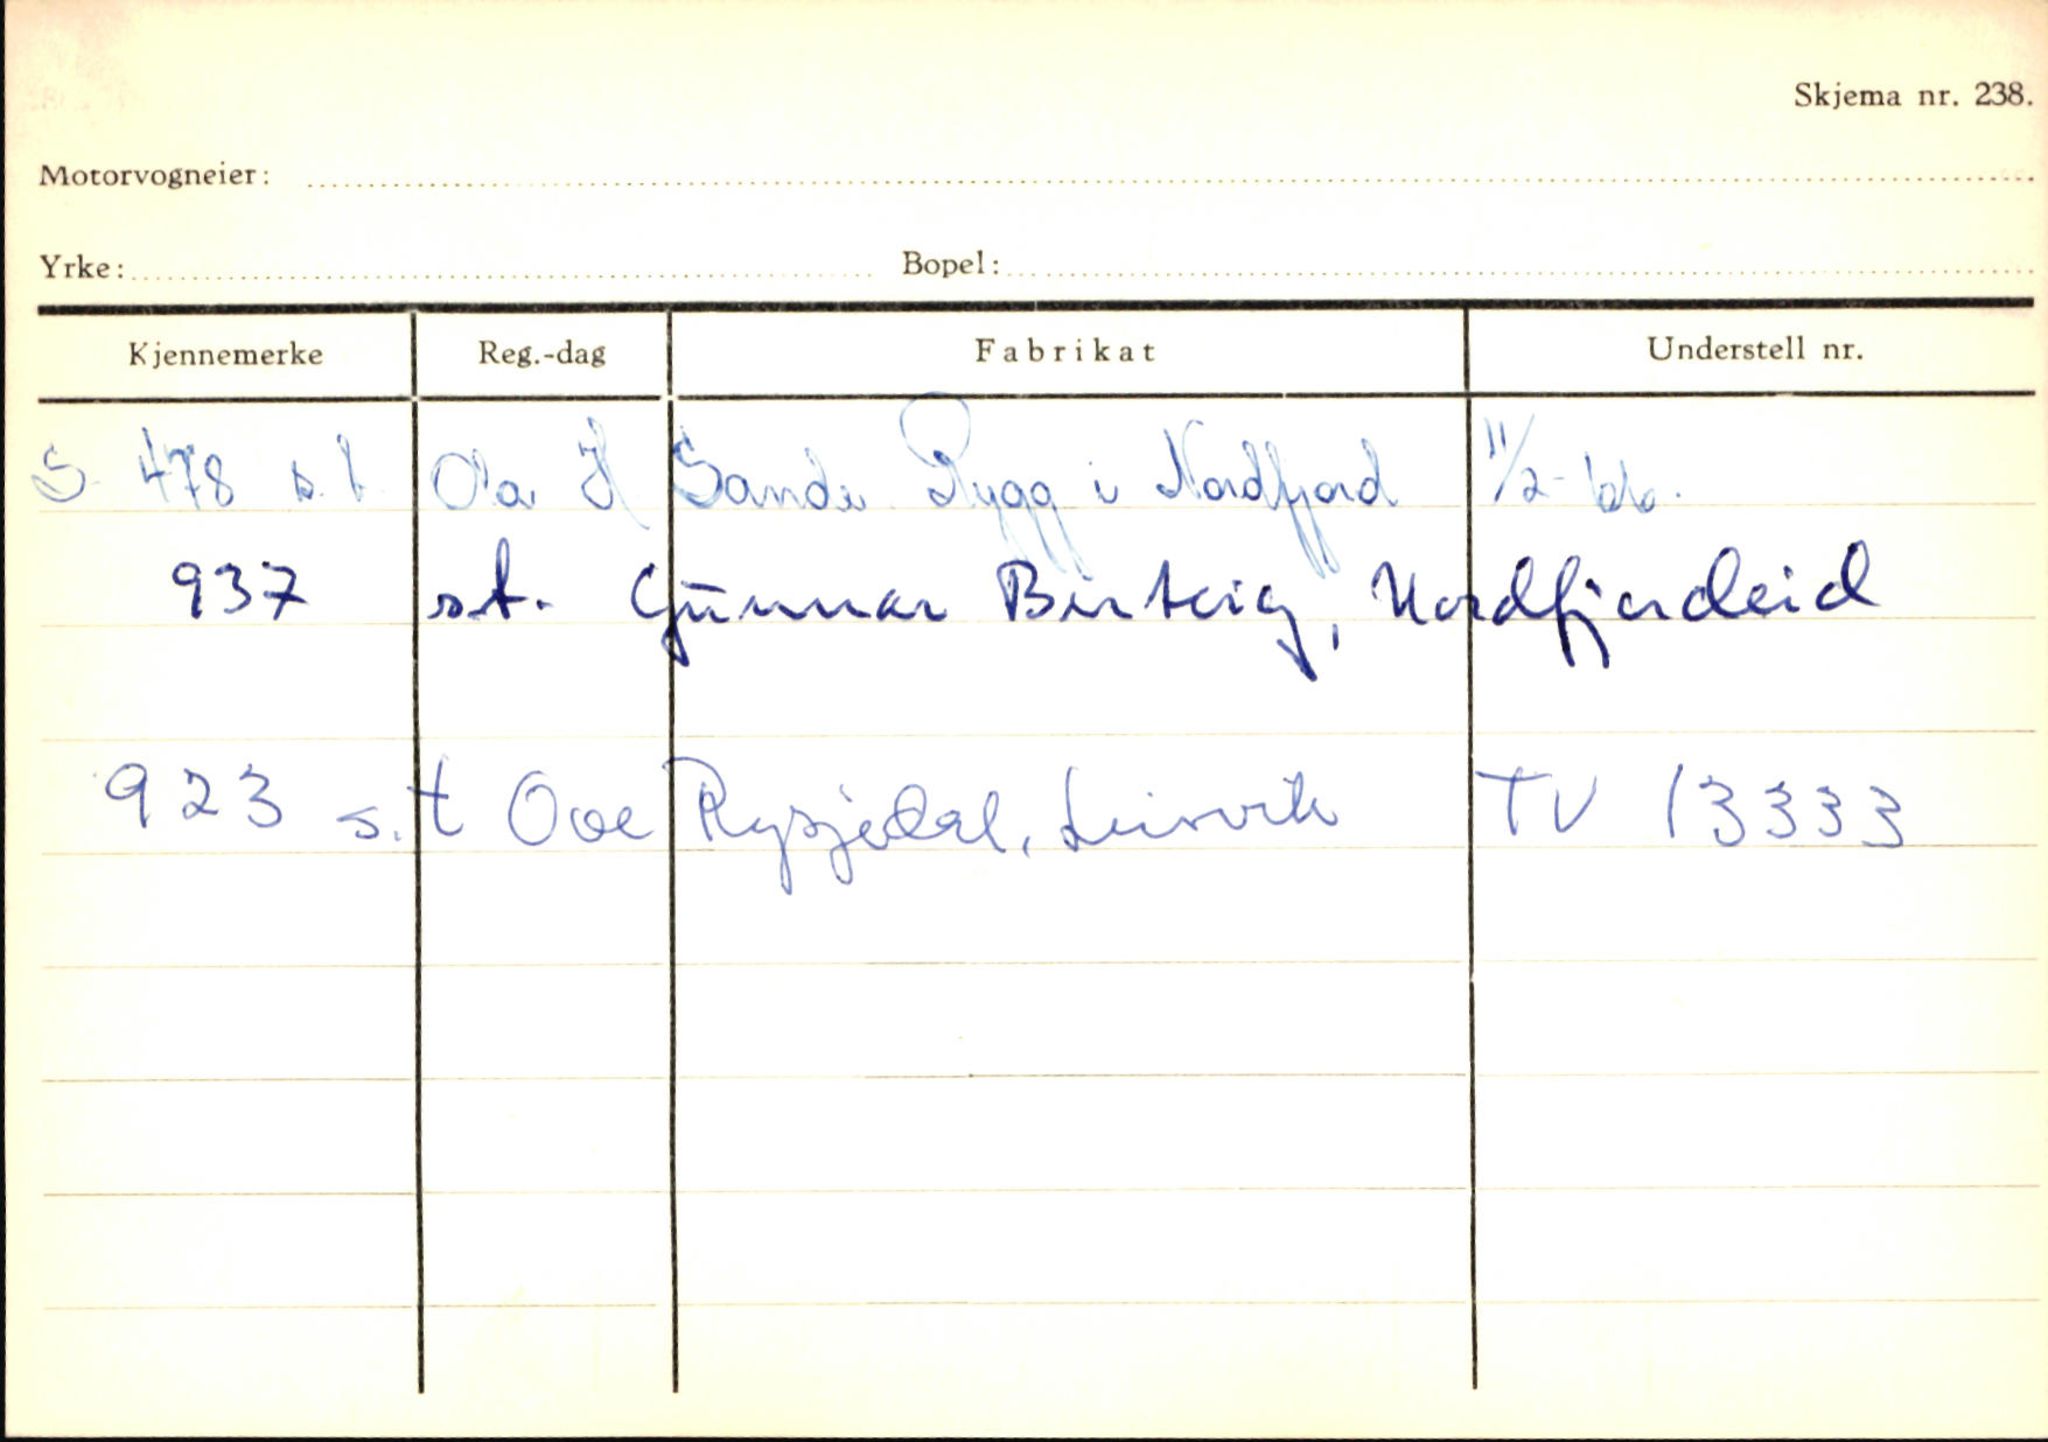 Skjema nr. 238.
Motorvogneier:
Yrke: Bopel:
Kjennemerke Reg.-dag Fabrikat Understell nr.
S. 478 s.t. Ola H Sande Rygg i Nordfjord 11/2-
937 st. Gunnar Birkeig, Nordfjordeid
923 s.t Ove Rysjedal, Leirvik TV 13333